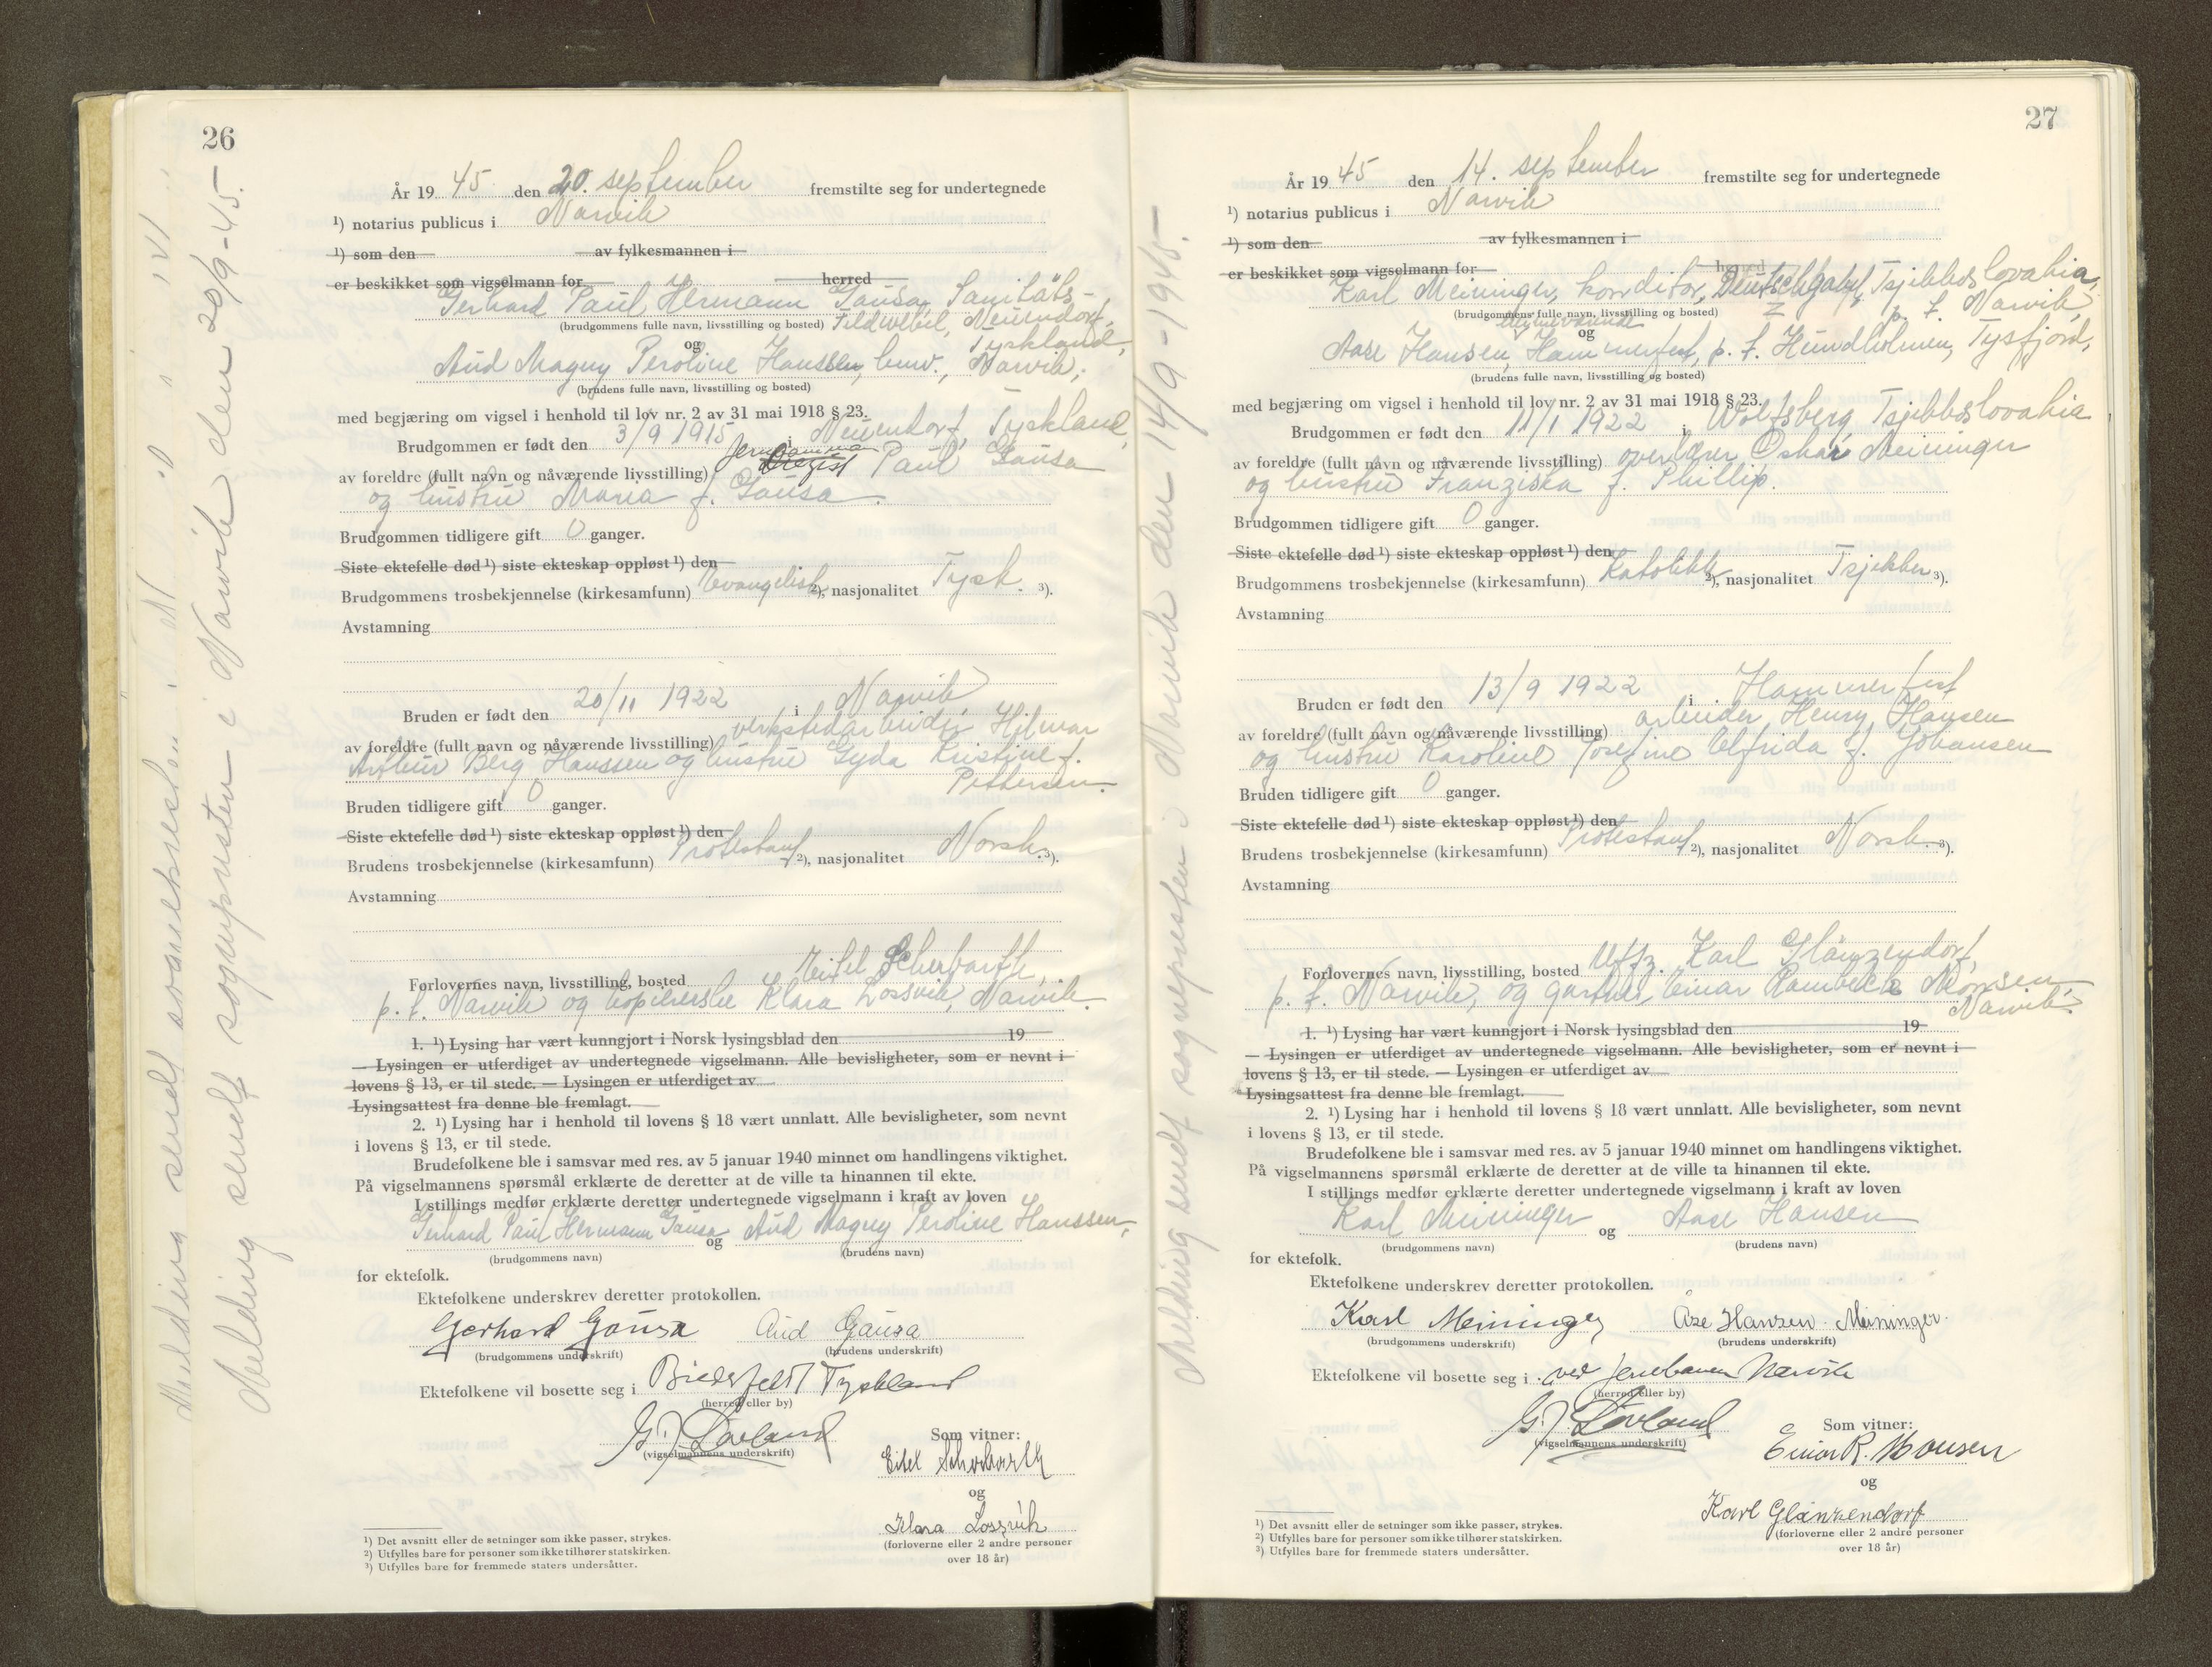 26
År 19 45 den 20. september fremstilte seg for undertegnede
¹) notarius publicus i Narvik
¹) som den av fylkesmannen i
er beskikket som vigselmann for herred
Gerhard Paul Hermann Gausa, Sanitäts-
(brudgommens fulle navn, livsstilling og bosted) Feldwebel, Neuendorf,
og Tyskland,
Aud Magny Peroline Hanssen, husv., Narvik,
(brudens fulle navn, livsstilling og bosted)
med begjæring om vigsel i henhold til lov nr. 2 av 31 mai 1918 § 23.
Brudgommen er født den 3/9 1915 i Neuendorf, Tyskland,
av foreldre (fullt navn og nåværende livsstilling) Paul Gausa
og hustru Maria f. Gausa.
Brudgommen tidligere gift 0 ganger.
Siste ektefelle død ¹) siste ekteskap oppløst ¹) den
Brudgommens trosbekjennelse (kirkesamfunn) Evangelisk ²), nasjonalitet Tysk. ³).
Avstamning
Bruden er født den 20/11 1922 i Narvik,
av foreldre (fullt navn og nåværende livsstilling) verkstedarbeider Hilmar
Arthur Berg Hanssen og hustru Gyda Kristine f.
Pettersen.
Bruden tidligere gift 0 ganger.
Siste ektefelle død ¹) siste ekteskap oppløst ¹) den
Brudens trosbekjennelse (kirkesamfunn) Protestant ²), nasjonalitet Norsk. ³).
Avstamning
Forlovernes navn, livsstilling, bosted Eitel Scherbarth,
p. t. Narvik og Klara Lossvik, Narvik.
1. ¹) Lysing har vært kunngjort i Norsk lysingsblad den 19
— Lysingen er utferdiget av undertegnede vigselmann. Alle bevisligheter, som er nevnt i
lovens § 13, er til stede. — Lysingen er utferdiget av
Lysingsattest fra denne ble fremlagt.
2. ¹) Lysing har i henhold til lovens § 18 vært unnlatt. Alle bevisligheter, som nevnt
i lovens § 13, er til stede.
Brudefolkene ble i samsvar med res. av 5 januar 1940 minnet om handlingens viktighet.
På vigselmannens spørsmål erklærte de deretter at de ville ta hinannen til ekte.
I stillings medfør erklærte deretter undertegnede vigselmann i kraft av loven
Gerhard Paul Hermann Gausa og Aud Magny Peroline Hanssen,
(brudgommens navn) (brudens navn)
for ektefolk.
Ektefolkene underskrev deretter protokollen.
Gerhard Gausa Aud Gausa
(brudgommens underskrift) (brudens underskrift)
Ektefolkene vil bosette seg i Tyskland
(herred eller by)
G. J. Løvland
(vigselmannens underskrift)
Som vitner:
Eitel Scherbarth
og
Klara Lossvik
(forloverne eller 2 andre personer
over 18 år)
¹) Det avsnitt eller de setninger som ikke passer, strykes.
²) Utfylles bare for personer som ikke tilhører statskirken.
³) Utfylles bare for fremmede staters undersåtter.
Melding sendt sognepresten i Narvik den 20/9-45.-
27
År 19 45 den 14. september fremstilte seg for undertegnede
¹) notarius publicus i Narvik
¹) som den av fylkesmannen i
er beskikket som vigselmann for herred
Karl Meininger, konditor, Tsjekkoslovakia,
(brudgommens fulle navn, livsstilling og bosted) p. t. Narvik,
hjemmeværende
og
Aase Hansen, Hammerfest, p. t. Hundholmen, Tysfjord,
(brudens fulle navn, livsstilling og bosted)
med begjæring om vigsel i henhold til lov nr. 2 av 31 mai 1918 § 23.
Brudgommen er født den 11/1 1922 i Wolfsberg, Tsjekkoslovakia
av foreldre (fullt navn og nåværende livsstilling) overlærer Oskar Meininger
og hustru Franziska f. Phillip.
Brudgommen tidligere gift 0 ganger.
Siste ektefelle død ¹) siste ekteskap oppløst ¹) den
Brudgommens trosbekjennelse (kirkesamfunn) Katolikk ²), nasjonalitet Tsjekker ³).
Avstamning
Bruden er født den 13/9 1922 i Hammerfest
av foreldre (fullt navn og nåværende livsstilling) arbeider Henry Hansen
og hustru Karoline Josefine Elfrida f. Johansen
Bruden tidligere gift 0 ganger.
Siste ektefelle død ¹) siste ekteskap oppløst ¹) den
Brudens trosbekjennelse (kirkesamfunn) Protestant ²), nasjonalitet Norsk. ³).
Avstamning
Forlovernes navn, livsstilling, bosted Uffz. Karl Glänzendorf,
p. t. Narvik, og gartner Einar Rambeck Monsen
Narvik.
1. ¹) Lysing har vært kunngjort i Norsk lysingsblad den 19
— Lysingen er utferdiget av undertegnede vigselmann. Alle bevisligheter, som er nevnt i
lovens § 13, er til stede. — Lysingen er utferdiget av
Lysingsattest fra denne ble fremlagt.
2. ¹) Lysing har i henhold til lovens § 18 vært unnlatt. Alle bevisligheter, som nevnt
i lovens § 13, er til stede.
Brudefolkene ble i samsvar med res. av 5 januar 1940 minnet om handlingens viktighet.
På vigselmannens spørsmål erklærte de deretter at de ville ta hinannen til ekte.
I stillings medfør erklærte deretter undertegnede vigselmann i kraft av loven
Karl Meininger og Aase Hansen
(brudgommens navn) (brudens navn)
for ektefolk.
Ektefolkene underskrev deretter protokollen.
Karl Meininger Åse Hansen Meininger.
(brudgommens underskrift) (brudens underskrift)
Ektefolkene vil bosette seg i ved Jernbanen Narvik
(herred eller by)
G. J. Løvland
(vigselmannens underskrift)
Som vitner:
Einar R. Monsen
og
Karl Glänzendorf
(forloverne eller 2 andre personer
over 18 år)
¹) Det avsnitt eller de setninger som ikke passer, strykes.
²) Utfylles bare for personer som ikke tilhører statskirken.
³) Utfylles bare for fremmede staters undersåtter.
Melding sendt sognepresten i Narvik den 14/9-1945.-